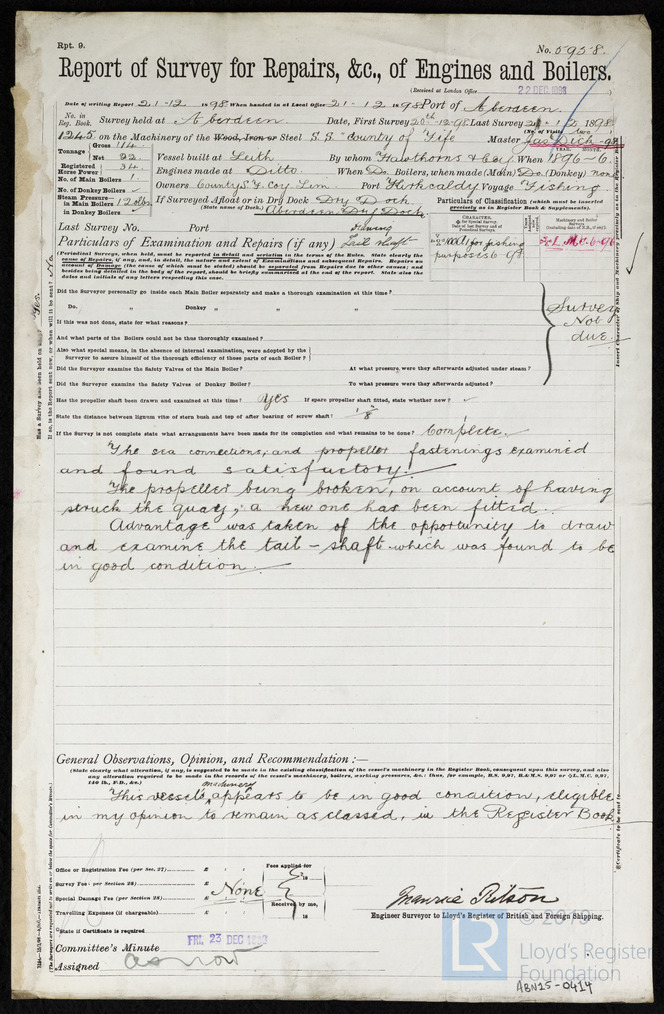 Rpt. 9.
No. 5958.
Report of Survey for Repairs, &c., of Engines and Boilers.
(Received at London Office 22 DEC. 1898
Date of writing Report 21-12 1898 When handed in at Local Office 21-12 1898 Port of Aberdeen.
No. in Reg. Book. Survey held at Aberdeen Date, First Survey 20th-12-98 Last Survey 21-12 1898
(No. of Visits two)
1245 on the Machinery of the Wood, Iron or Steel S.S. "County of Fife Master Jas Dick
Tonnage Gross 114 Net 22 Vessel built at Leith By whom Hawthorns & Coy When 1896-6
Registered Horse Power 34 Engines made at Ditto. When Do. Boilers, when made (Main) Do. (Donkey) none
No. of Main Boilers 1 Owners County S.F. Coy Lim Port Kirkcaldy Voyage Fishing
No. of Donkey Boilers
Steam Pressure— in Main Boilers 120 lbs If Surveyed Afloat or in Dry Dock Dry Dock
in Donkey Boilers (State name of Dock.) Aberdeen Dry Dock.
Particulars of Classification (which must be inserted precisely as in Register Book & Supplements).
Last Survey No. Port
CHARACTER. for Special Survey. Date of last Survey and of Periodical Surveys.
Machinery and Boiler Surveys (including date of N.B., if any)
100A1 for fishing purposes 6.98
L.M.C. 6.96
Particulars of Examination and Repairs (if any) Tail shaft
(Periodical Surveys, when held, must be reported in detail and seriatim in the terms of the Rules. State clearly the cause of Repairs, if any, and, in detail, the nature and extent of Examinations and subsequent Repairs. Repairs on account of Damage (the cause of which must be stated) should be separated from Repairs due to other causes; and besides being detailed in the body of the report, should be briefly summarised at the end of the report. State also the dates and initials of any letters respecting this case.
Did the Surveyor personally go inside each Main Boiler separately and make a thorough examination at this time?
Do. " Donkey " " " "
If this was not done, state for what reasons?
And what parts of the Boilers could not be thoroughly examined?
Also what special means, in the absence of internal examination, were adopted by the Surveyor to assure himself of the thorough efficiency of those parts of each Boiler?
Did the Surveyor examine the Safety Valves of the Main Boiler? At what pressure were they afterwards adjusted under steam?
Did the Surveyor examine the Safety Valves of Donkey Boiler? To what pressure were they afterwards adjusted?
Survey Not due.
Has the propeller shaft been drawn and examined at this time? Yes If spare propeller shaft fitted, state whether new?
State the distance between lignum vitæ of stern bush and top of after bearing of screw shaft? 1/8"
If the Survey is not complete state what arrangements have been made for its completion and what remains to be done? Complete.
The sea connections, and propeller fastenings examined
and found satisfactory.
The propeller being broken, on account of having
struck the quay, a new one has been fitted.
Advantage was taken of the opportunity to draw
and examine the tail-shaft which was found to be
in good condition.
General Observations, Opinion, and Recommendation:—
(State clearly what alteration, if any, is suggested to be made in the existing classification of the vessel's machinery in the Register Book, consequent upon this survey, and also any alteration required to be made in the records of the vessel's machinery, boilers, working pressures, &c.: thus, for example, B.S. 9,97, B.&M.S. 9,97 or L.M.C. 9,97, 140 lb., F.D., &c.)
This vessel's machinery appears to be in good condition, eligible
in my opinion to remain as classed, in the Register Book
Office or Registration Fee (per Sec. 27) £ : :
Survey Fee (per Section 28) £ : :
Special Damage Fee (per Section 28) £ : :
Travelling Expenses (if chargeable) £ : :
None
Fees applied for 18
Received by me, 18
State if Certificate is required
Engineer Surveyor to Lloyd's Register of British and Foreign Shipping.
Committee's Minute FRI. 23 DEC 1898
Assigned as now
© 2019
LR
Lloyd's Register Foundation
ABN25-0414